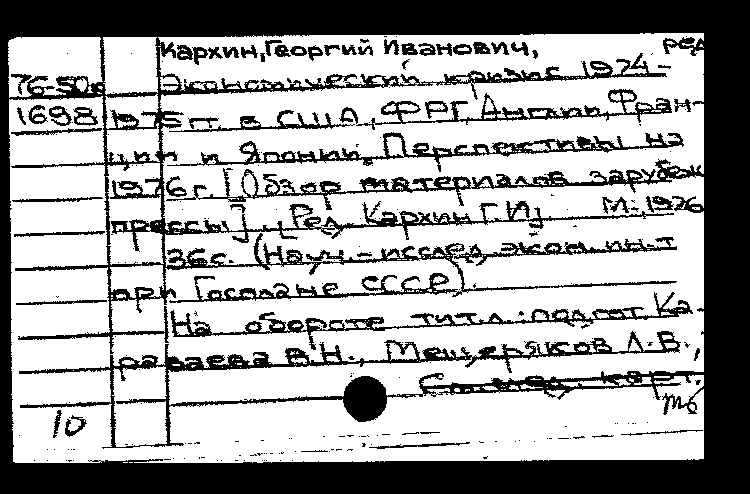 Кархин, Георгий Иванович, ред
76-50к Экономический кризис 1974-
1698 1975 гг. в США, ФРГ, Англии, Фран-
ции и Японии. Перспективы на
1976 г. [Обзор материалов зарубеж
прессы]. Ред. Кархин Г.И. М., 1976
36 с. (Науч.-исслед. экон. ин-т
при Госплане СССР).
На обороте тит.л.: подгот. Ка-
раваева В.Н., Мещеряков Л.В.,
См. след. карт.
10